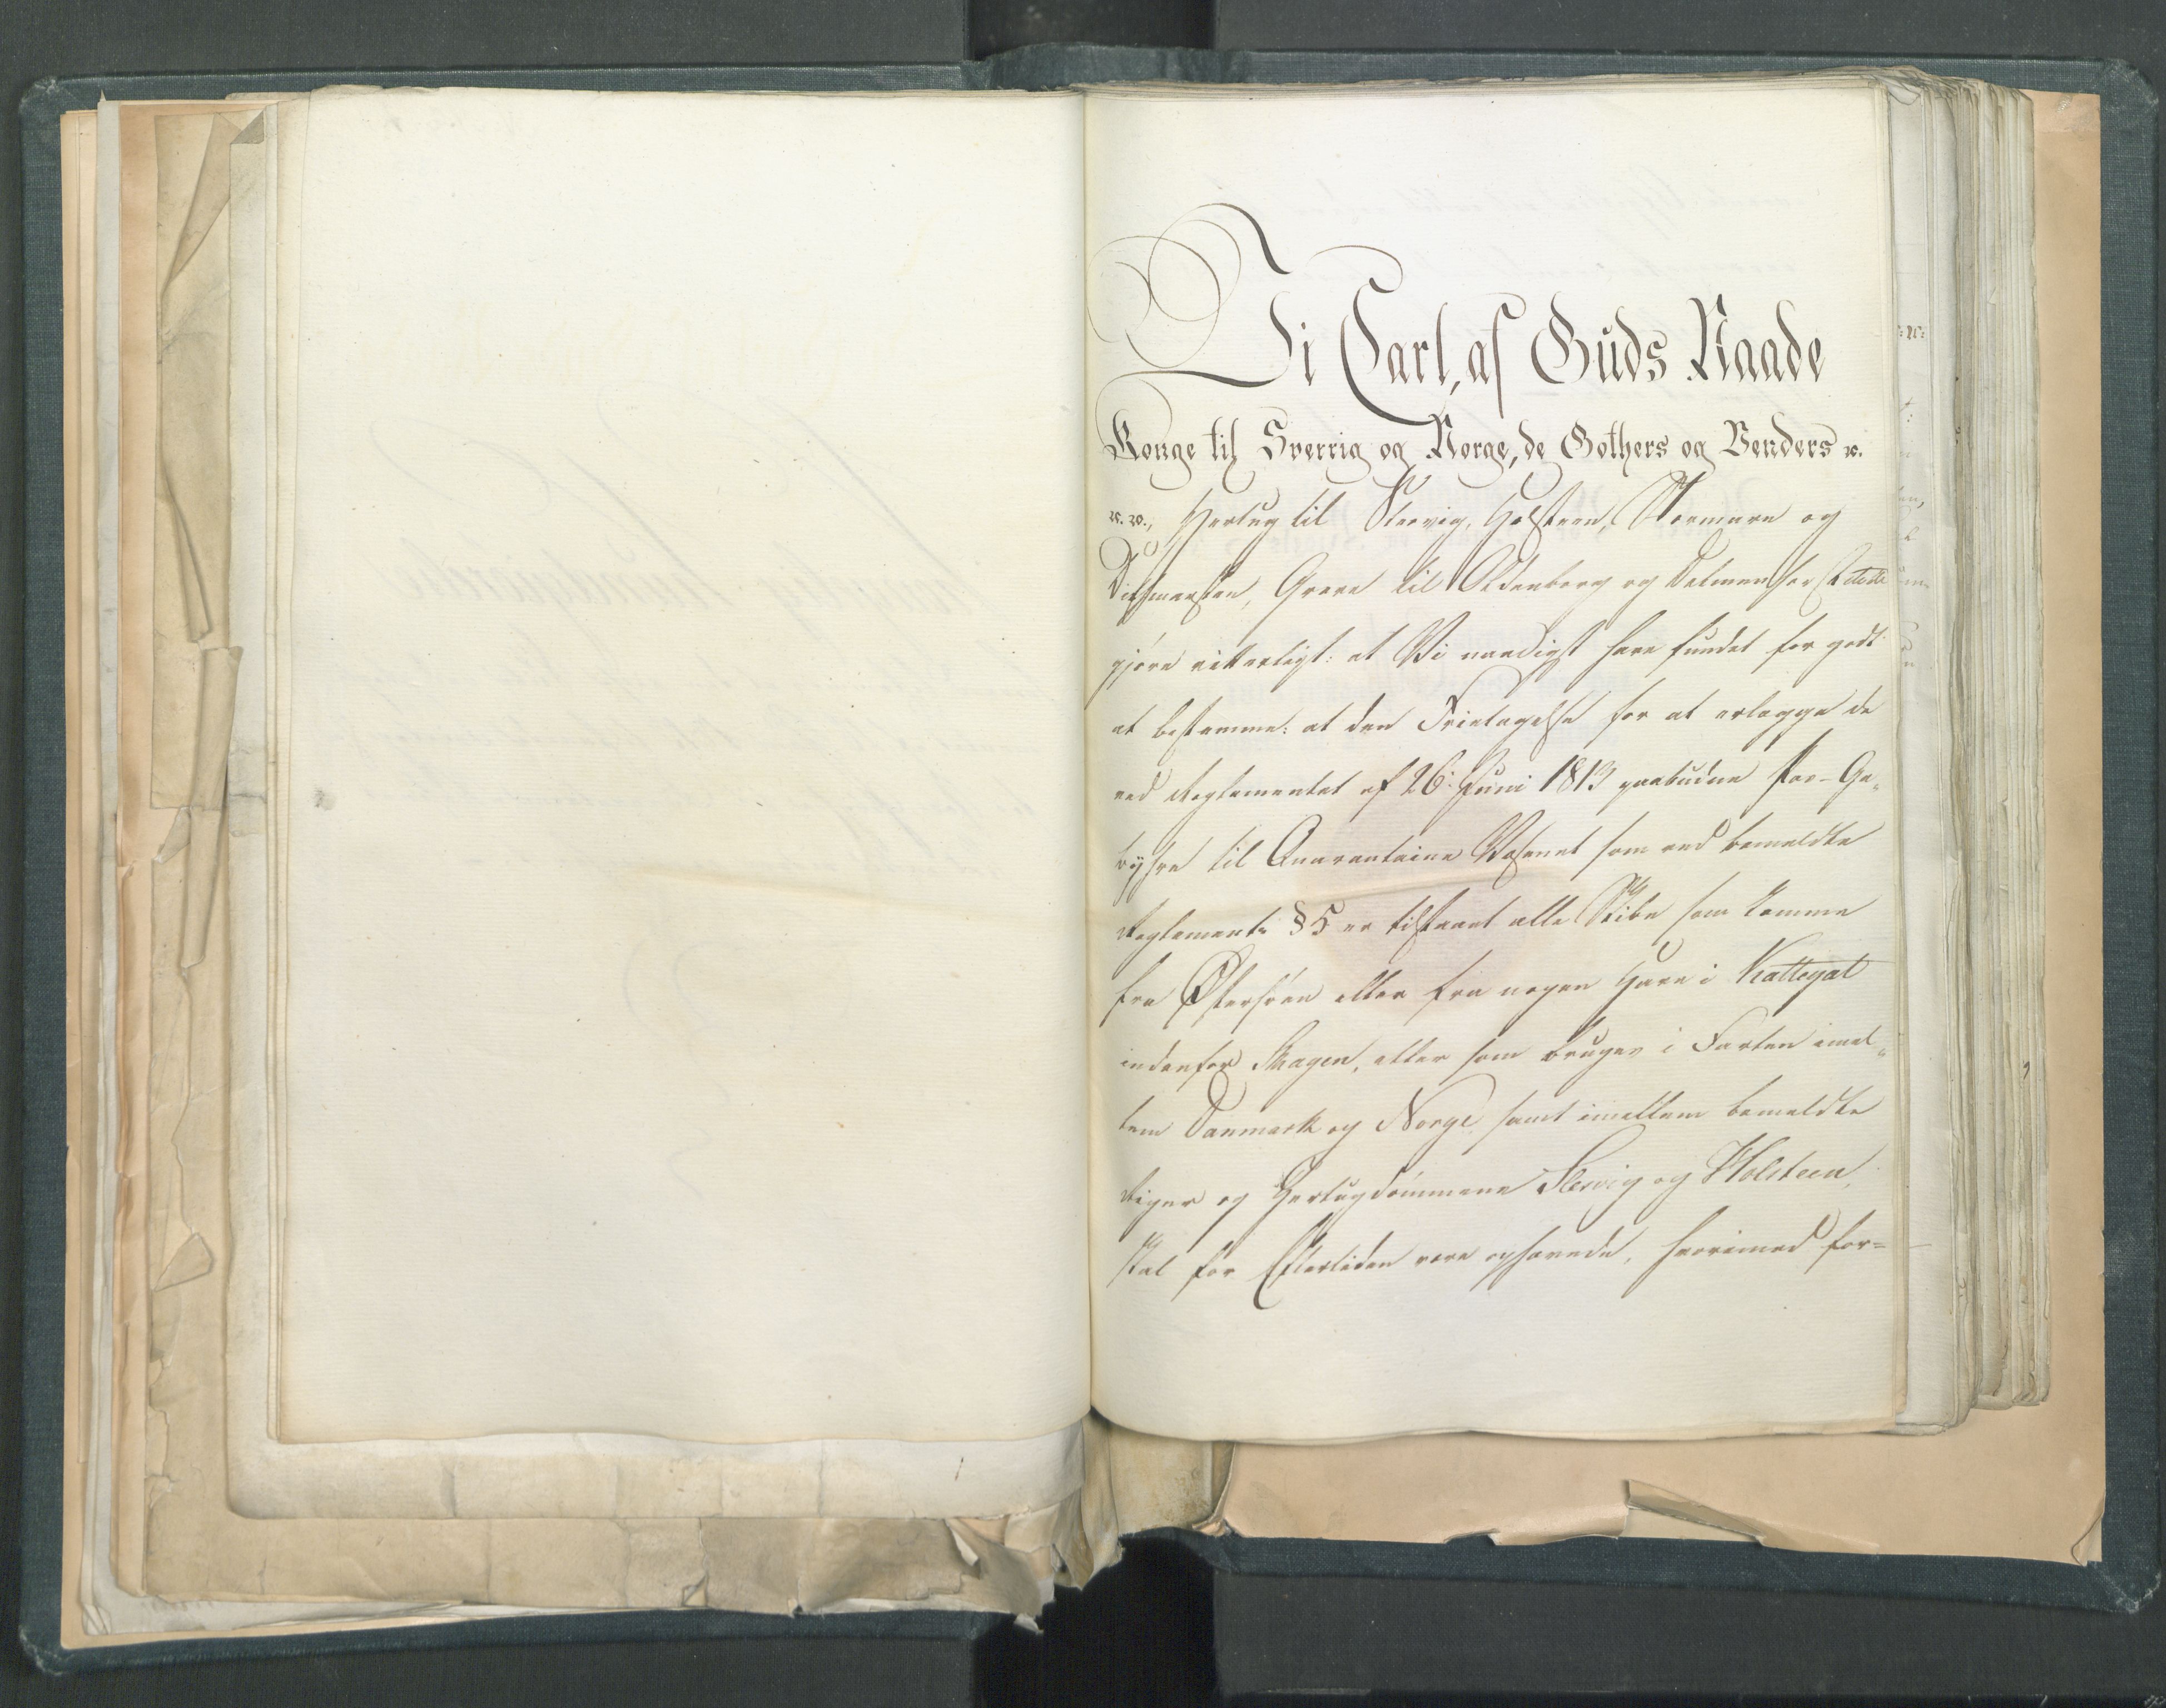 Vi Carl, af Guds Naade
Konge til Sverrig og Norge, de Gothers og Venders &c.
&c. &c., Hertug til Slesvig, Holsteen, Stormarn og
Ditmarsken, Greve til Oldenborg og Delmenhorst &c. &c.
gjøre vitterligt: at Vi naadigst have fundet for godt
at bestemme: at den Fritagelse for at erlægge de
ved Reglementet af 26: Juni 1813 paabudne Ge„
byhre til Quarantaine Væsenet som ved bemeldte
Reglements § 5 er tilstaaet alle Skibe som komme
fra Østersøen eller fra nogen Havn i Kattegat
indenfor Skagen, eller som bruges i Farten imel„
lem Danmark og Norge samt imellem bemeldte
Riger og Hertugdømmene Slesvig og Holsteen,
skal for Eftertiden være ophævede, hvorimod for=